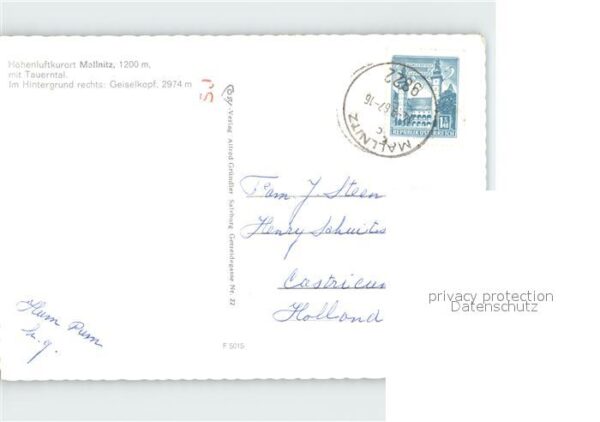 Höhenluftkurort Mallnitz, 1200 m,
mit Tauerntal.
Im Hintergrund rechts: Geiselkopf, 2974 m
SJ
Verlag Alfred Gründler Salzburg Getreidegasse Nr. 22
9822
67-16
MALLNITZ
c
REPUBLIK ÖSTERREICH
Fam. J. Steen
Henry
Castricum
Holland
F 5015
privacy protection
Datenschutz